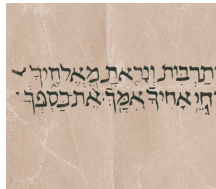 וְתַרְבִּית וְיָרֵאתָ מֵאֱלֹהֶיךָ
וְחֵי אָחִיךָ עִמָּךְ אֶת־כַּסְפְּךָ